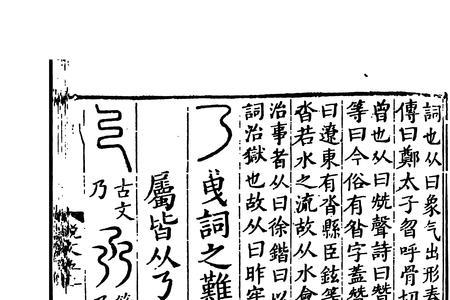 詞也从曰象气出形春
傳曰鄭太子曶呼骨切
曾也从曰兟聲詩曰朁
等曰今俗有昝字蓋朁
曰遼東有沓縣臣鉉等
沓若水之流故从水會
治事者从曰徐鍇曰以
詞治獄也故从曰昨牢
乃 曳詞之難
屬皆从乃
古文
乃